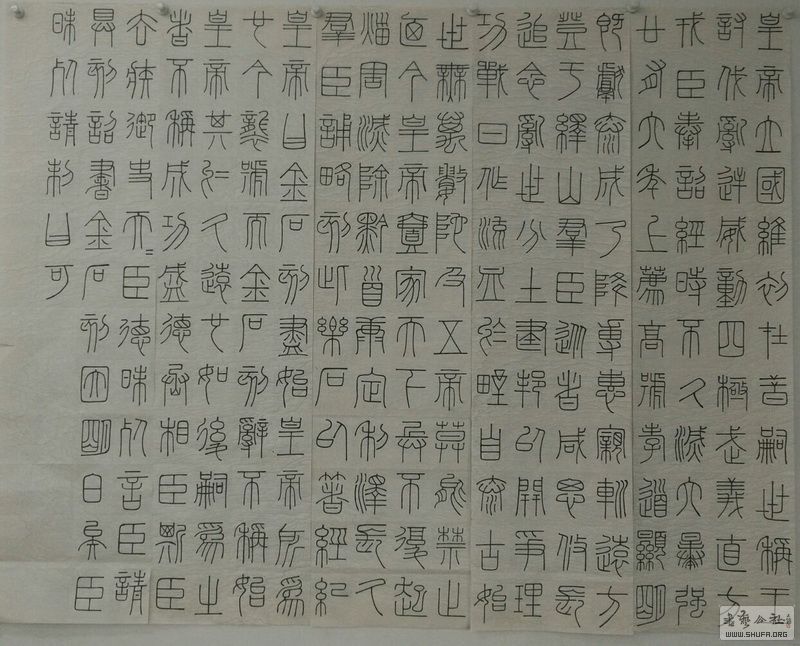 皇帝立國維初在昔嗣世稱王
討伐亂逆威動四極武義直方
戎臣奉詔經時不久滅六暴強
廿有六年上薦高號孝道顯明
既獻泰成乃降專惠親巡遠方
登于繹山羣臣從者咸思攸長
追念亂世分土建邦以開爭理
功戰日作流血於野自泰古始
世無萬數陀及五帝莫能禁止
迺今皇帝壹家天下兵不復起
災害滅除黔首康定利澤長久
羣臣誦略刻此樂石以著經紀
皇帝曰金石刻盡始皇帝所為
也今襲號而金石刻辭不稱始
皇帝其於久遠也如後嗣為之
者不稱成功盛德丞相臣斯臣
去疾御史夫=臣德昧死言臣請
具刻詔書金石刻因明白矣臣
昧死請制曰可
WWW.SHUFA.ORG